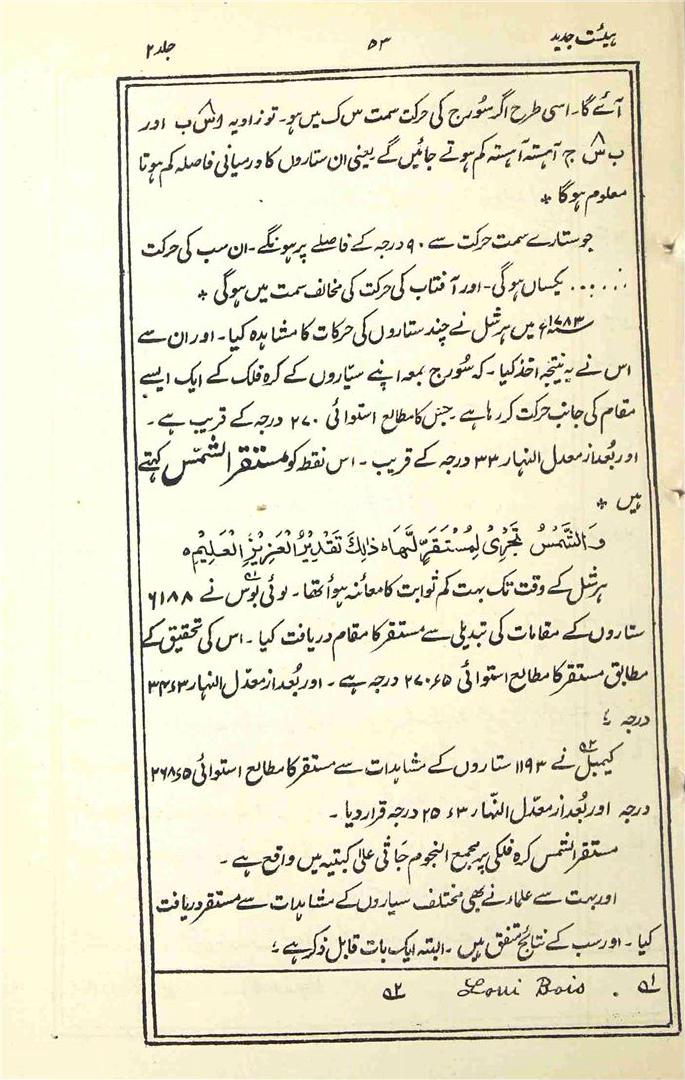 ہیئت جدید ۵۳ جلد ۲
آئے گا۔ اسی طرح اگر سُورج کی حرکت سمت س ک میں ہو۔ تو زاویہ ا س ب اور
ب س ج آہستہ آہستہ کم ہوتے جائیں گے یعنی ان ستاروں کا درمیانی فاصلہ کم ہوتا
معلوم ہوگا *
جو ستارے سمت حرکت سے ۹۰ درجہ کے فاصلے پر ہونگے۔ ان سب کی حرکت
..... یکساں ہوگی۔ اور آفتاب کی حرکت کی مخالف سمت میں ہوگی *
۱۷۸۳ء میں ہرشل نے چند ستاروں کی حرکات کا مشاہدہ کیا۔ اور ان سے
اس نے یہ نتیجہ اخذ کیا۔ کہ سُورج بمعہ اپنے سیّاروں کے کرہ فلک کے ایک ایسے
مقام کی جانب حرکت کر رہا ہے۔ جس کا مطالع استوائی ۲۷۰ درجہ کے قریب ہے۔
اور بُعد از معدل النہار ۳۳ درجہ کے قریب۔ اس نقطہ کو مستقر الشمّس کہتے
ہیں *
وَالشَّمْسُ تَجْرِیْ لِمُسْتَقَرٍّ لَّهَا ہ ذٰلِكَ تَقْدِيْرُ الْعَزِيْزِ الْعَلِيْمِ ہ
ہرشل کے وقت تک بہت کم ثوابت کا معائنہ ہوأ تھا۔ لوئی بُوس۵۱ نے ۶۱۸۸
ستاروں کے مقامات کی تبدیلی سے مستقر کا مقام دریافت کیا۔ اس کی تحقیق کے
مطابق مستقر کا مطالع استوائی ۲۷۰ء۵ درجہ ہے۔ اور بُعد از معدّل النہار ۳۴ء۳
درجہ ؛
کیمبل۵۲ نے ۱۱۹۳ ستاروں کے مشاہدات سے مستقر کا مطالع استوائی ۲۶۸ء۵
درجہ اور بُعد از معدّل النّہار ۲۵ء۳ درجہ قرار دیا۔
مستقر الشمس کرہ فلکی پر مجمع النجوم جَاثی عَلیٰ کبتیہ میں واقع ہے۔
اور بہت سے علماء نے بھی مختلف سیاروں کے مشاہدات سے مستقر دریافت
کیا۔ اور سب کے نتائج متفق ہیں۔ البتہ ایک بات قابل ذکر ہے ؛
۵۱ . Loui Bois ۵۲